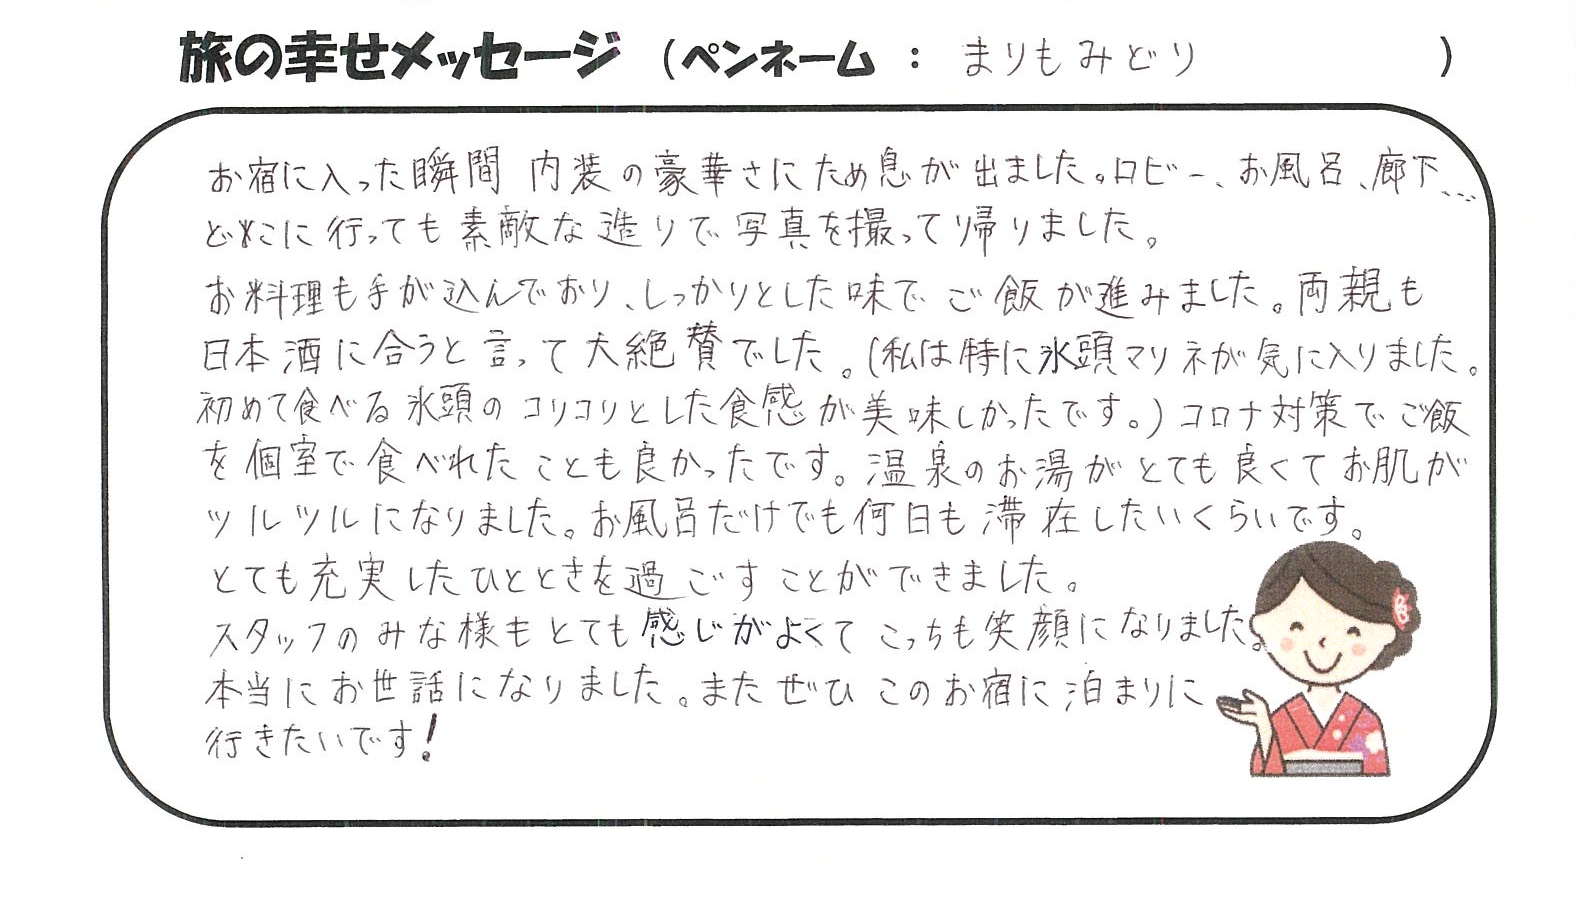 旅の幸せメッセージ (ペンネーム : まりもみどり )
お宿に入った瞬間 内装の豪華さにため息が出ました。ロビー、お風呂、廊下...
どこに行っても素敵な造りで写真を撮って帰りました。
お料理も手が込んでおり、しっかりとした味でご飯が進みました。両親も
日本酒に合うと言って大絶賛でした。(私は特に氷頭マリネが気に入りました。
初めて食べる氷頭のコリコリとした食感が美味しかったです。)コロナ対策でご飯
を個室で食べれたことも良かったです。温泉のお湯がとても良くてお肌が
ツルツルになりました。お風呂だけでも何日も滞在したいくらいです。
とても充実したひとときを過ごすことができました。
スタッフのみな様もとても感じがよくてこっちも笑顔になりました。
本当にお世話になりました。またぜひこのお宿に泊まりに
行きたいです!